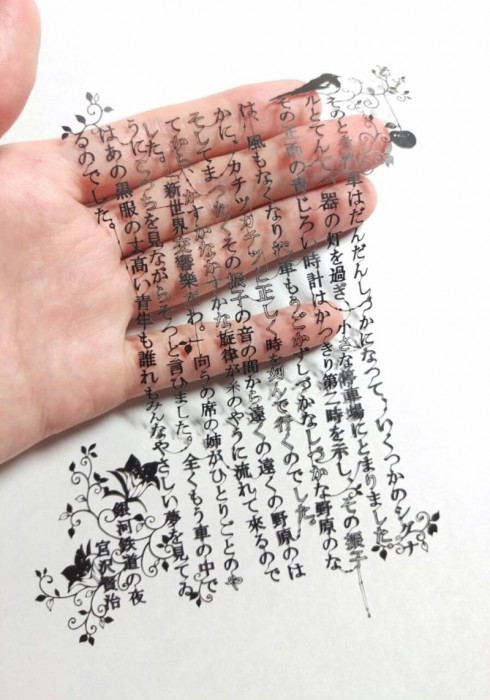 そのとき汽車はだんだんしづかになって、いくつかのシグナ
ルとてんてつ器の灯を過ぎ、小さな停車場にとまりました。
その正面の青じろい時計はかっきり第二時を示し、その振子
は、風もなくなり汽車もうごかずしづかなしづかな野原のな
かに、カチッカチッと正しく時を刻んで行くのでした。
そしてまったくその振子の音の間から遠くの遠くの野原のは
てから、かすかなかすかな旋律が糸のやうに流れて來るので
した。「新世界交響樂だわ。」向うの席の姉がひとりごとのや
うにこっちを見ながらそっと言ひました。全くもう車の中で
はあの黒服の丈高い青年も誰れもみんなやさしい夢を見てゐ
るのでした。
銀河鉄道の夜
宮沢賢治